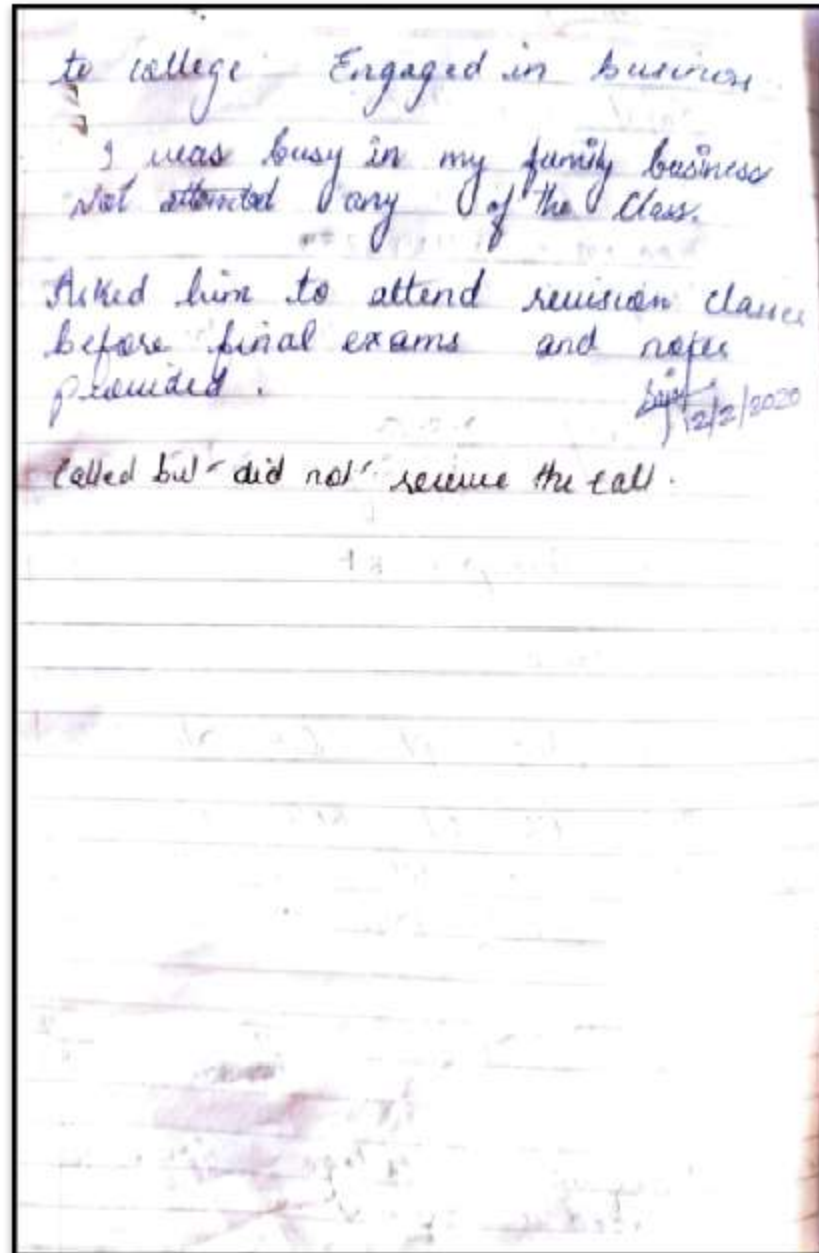 to college Engaged in business
I was busy in my family business
Not attended any of the Class.
Asked him to attend revision classes
before final exams and notes
provided.
12/2/2020
Called but did not receive the call.